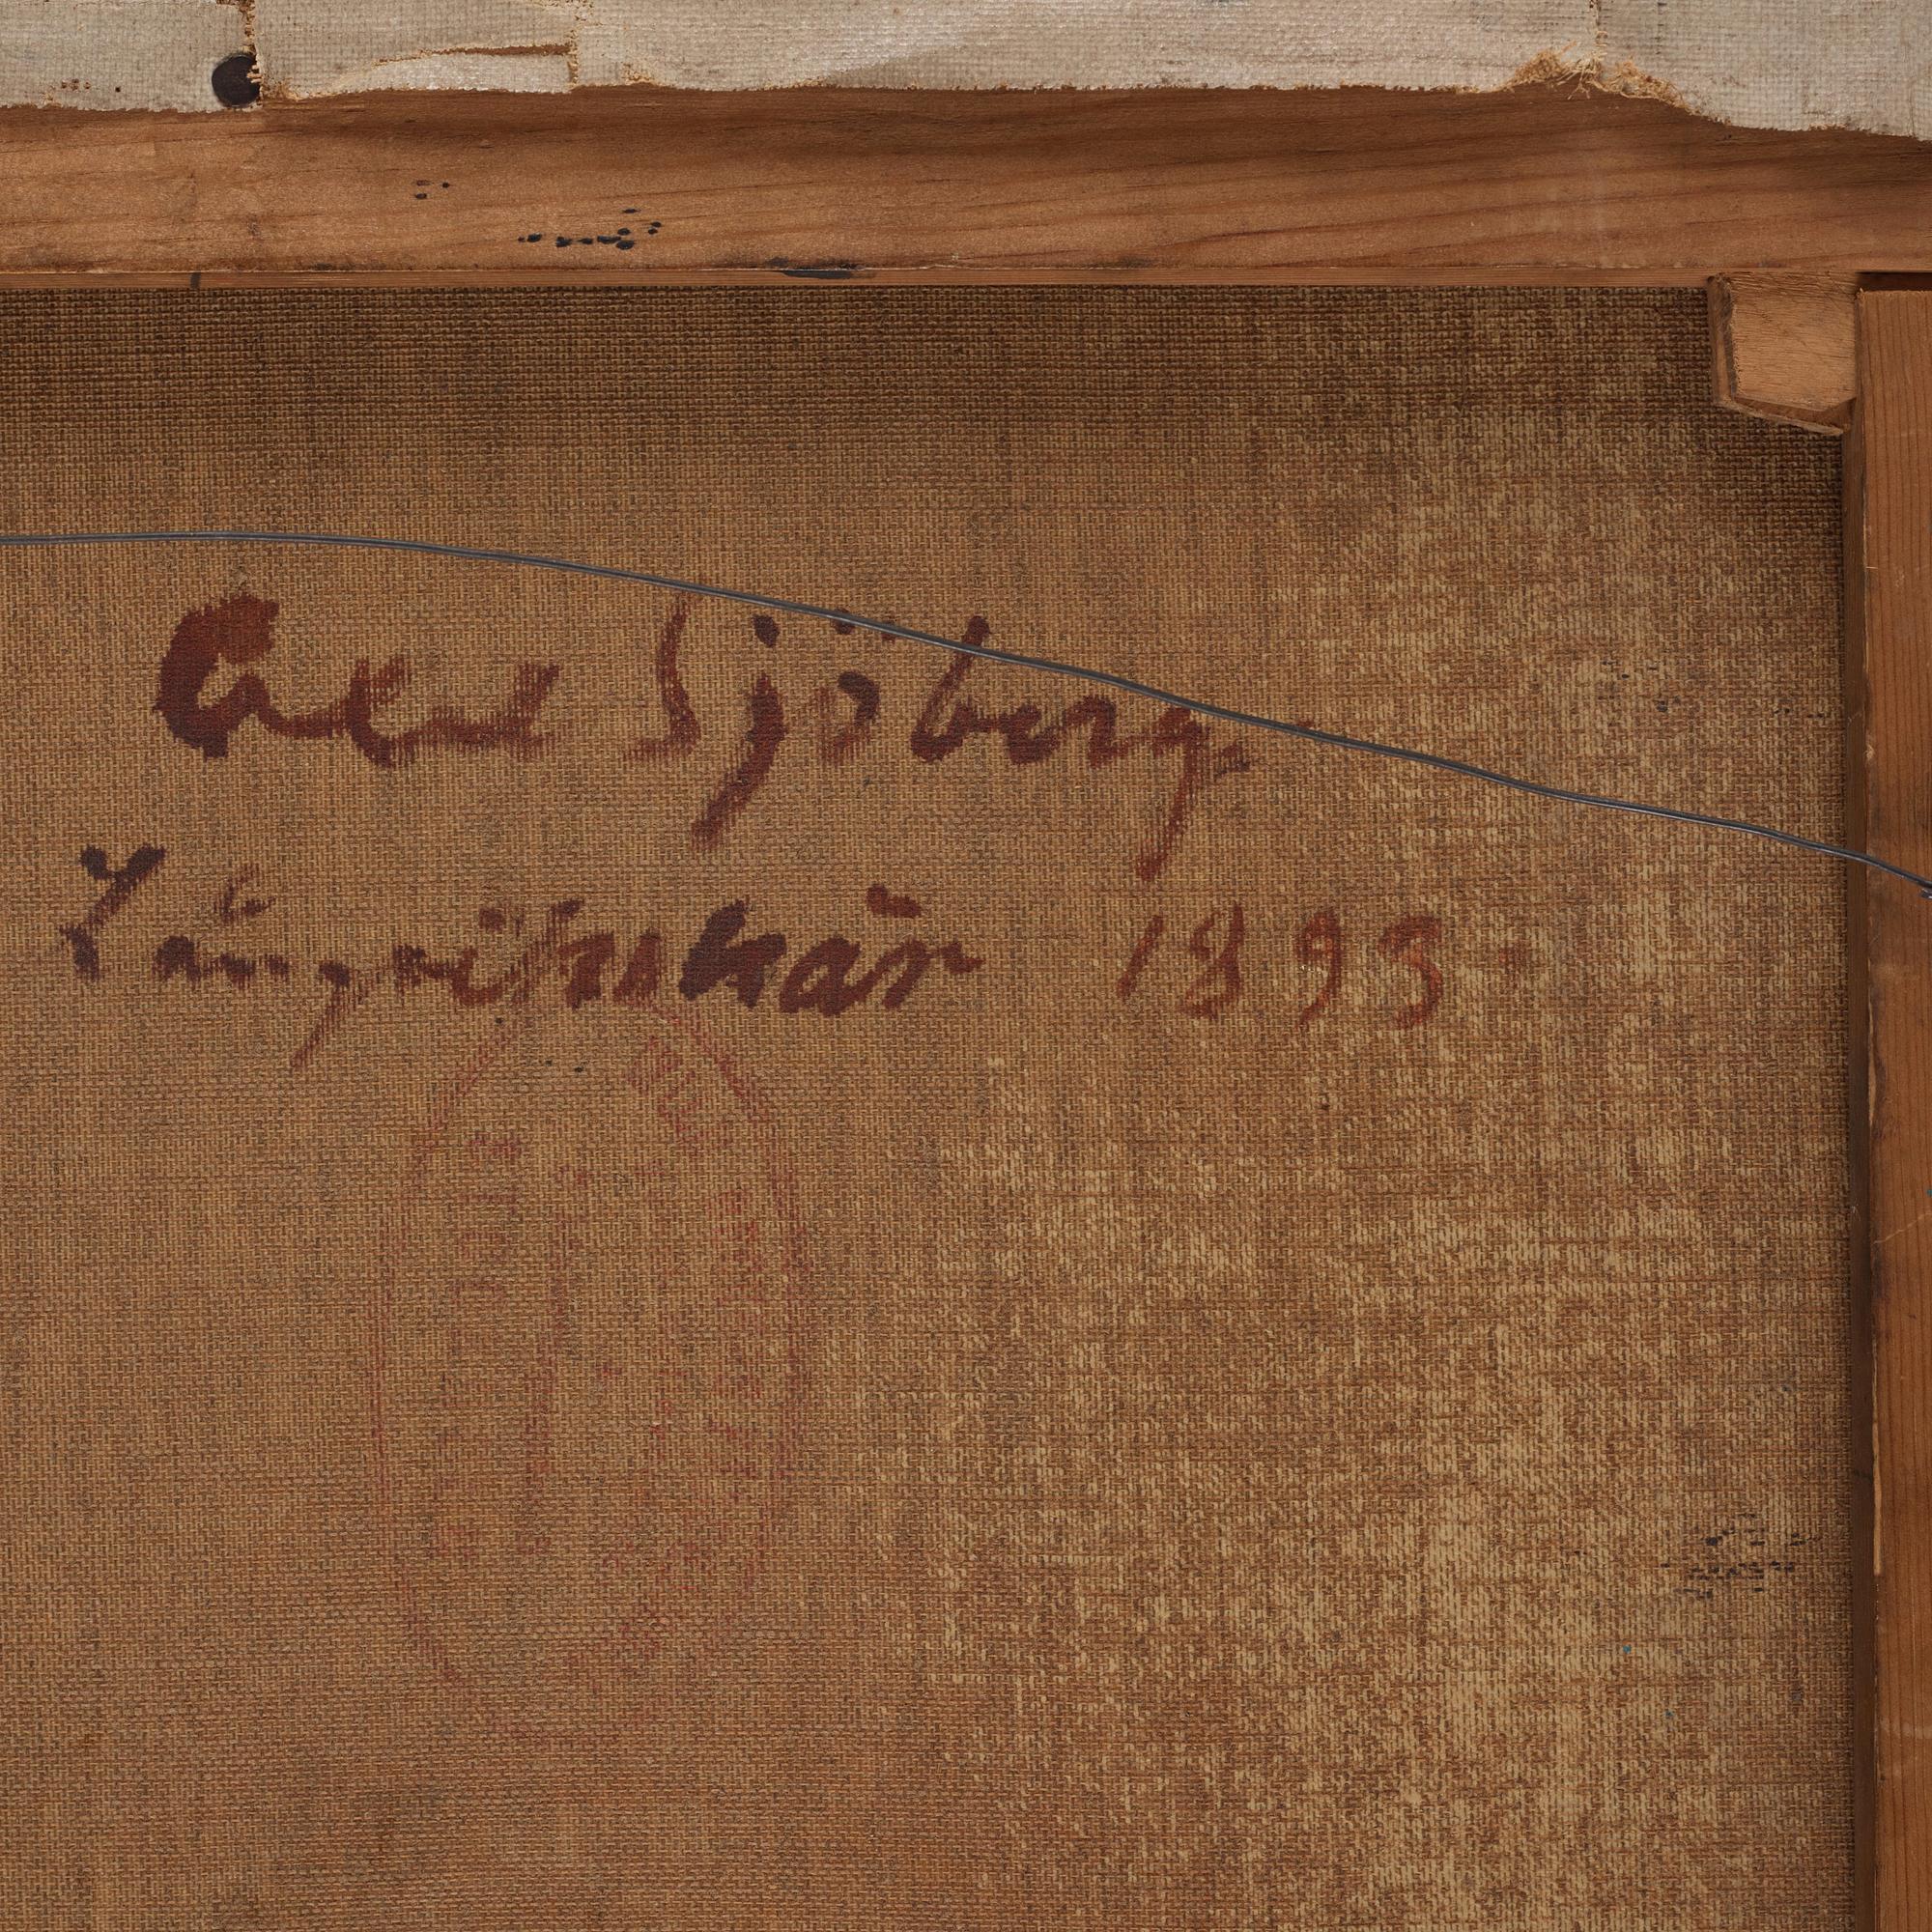 Axel Sjöberg
Långviksskär 1893